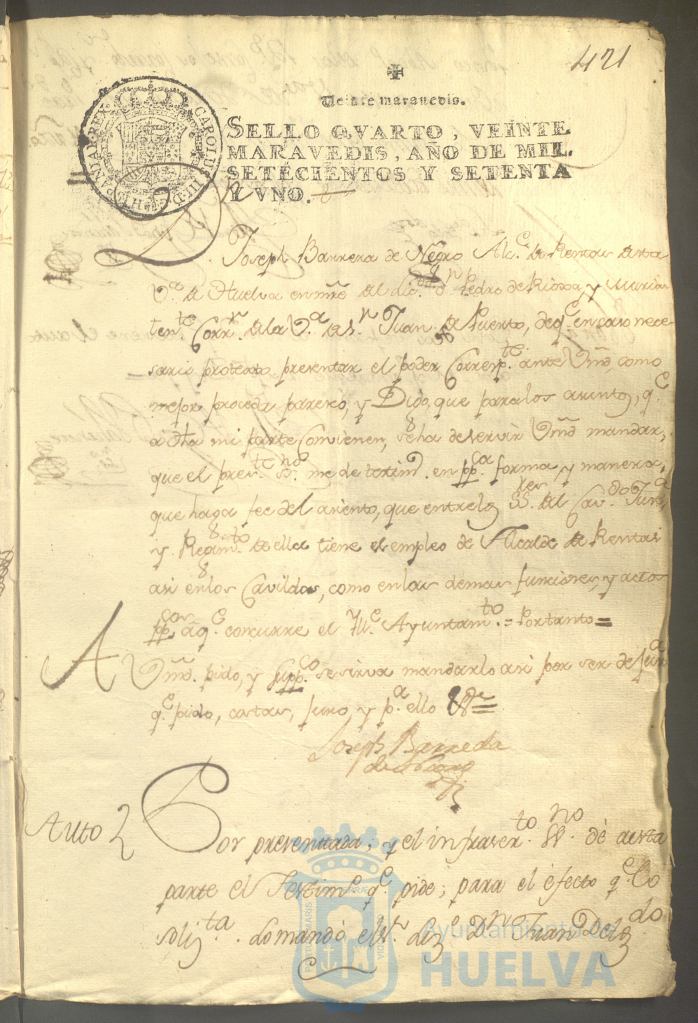 421
Veinte maravedis.
SELLO QVARTO, VEINTE
MARAVEDIS, AÑO DE MIL
SETECIENTOS Y SETENTA
Y VNO.
CAROLUS III D G HISPANIAR REX
D. Joseph Barrera de Negro Alc.e de Rentas de esta
V.a de Huelva en nre del D. Pedro de Rioxa, y
ten.te Corr.r de la V.a de S.n Juan del Puerto, de q.e en caso nece
sario protesto presentar el poder Corresp.te ante Vmd, como
mejor proceda parezco, y Digo, que para los asuntos, q.e
a dha mi parte Convienen, se ha de servir Vmd mandar,
que el pres.te ss.no me de testim.o en pp.ca forma, y manera,
que haga fee del asiento, que entre los SS.res del Cav.do Just.a
y Regim.to de ella tiene el empleo de Alcalde de Rentas
asi en los Cavildos, como en las demas funciones, y actos
pp.cos a q.e concurre el Yll.e Ayuntam.to = Por tanto =
A Vmd. pido, y supp.co se sirva mandarlo asi por ser de just.a
q.e pido, costas, juro, y p.a ello &.a =
Joseph Barreda
de Negro
Auto 2 Por presentada; y el infrascr.to ss.no dè a esta
parte el Testim.o q.e pide; para el efecto q.e So
lizita. Lo mandó el S.r liz.e D.n Juan Delg.do
Ayuntamiento de
HUELVA